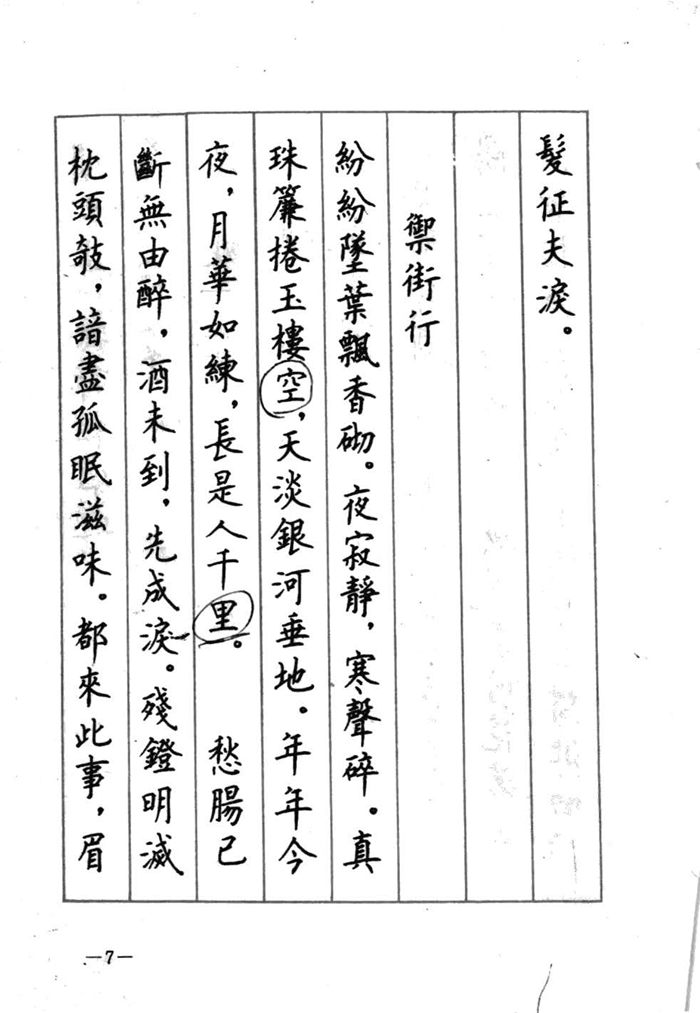 髮征夫淚。
禦街行
紛紛墜葉飄香砌。夜寂靜，寒聲碎。真
珠簾捲玉樓空，天淡銀河垂地。年年今
夜，月華如練，長是人千里。 愁腸已
斷無由醉，酒未到，先成淚。殘鐙明滅
枕頭攲，諳盡孤眠滋味。都來此事，眉
—7—